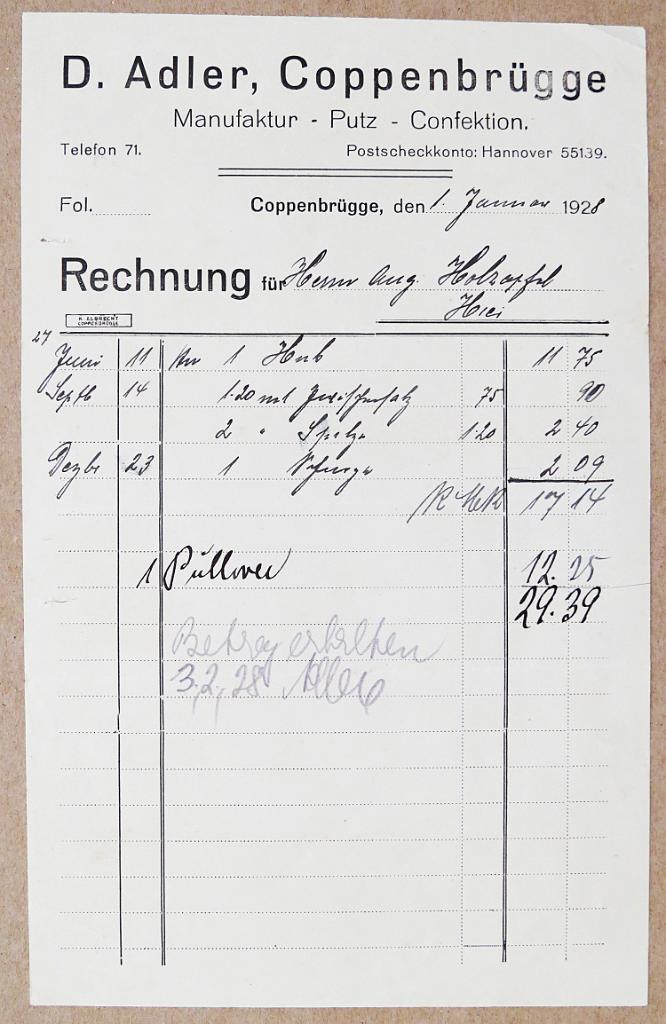 D. Adler, Coppenbrügge
Manufaktur - Putz - Confektion.
Telefon 71. Postscheckkonto: Hannover 55139.
Fol. Coppenbrügge, den 1. Januar 1928
Rechnung für Herrn Aug. Holzapfel
Hier
H. ALBRECHT
COPPENBRÜGGE
27
Juni 11 1 11 75
Septb 14 1.20 mt Zwischensatz 75 90
2 " Spitze 1.20 2 40
Dezbr 23 1 2 09
17 14
1 Pullover 12.25
29.39
Betrag erhalten
3,2,28 Adler